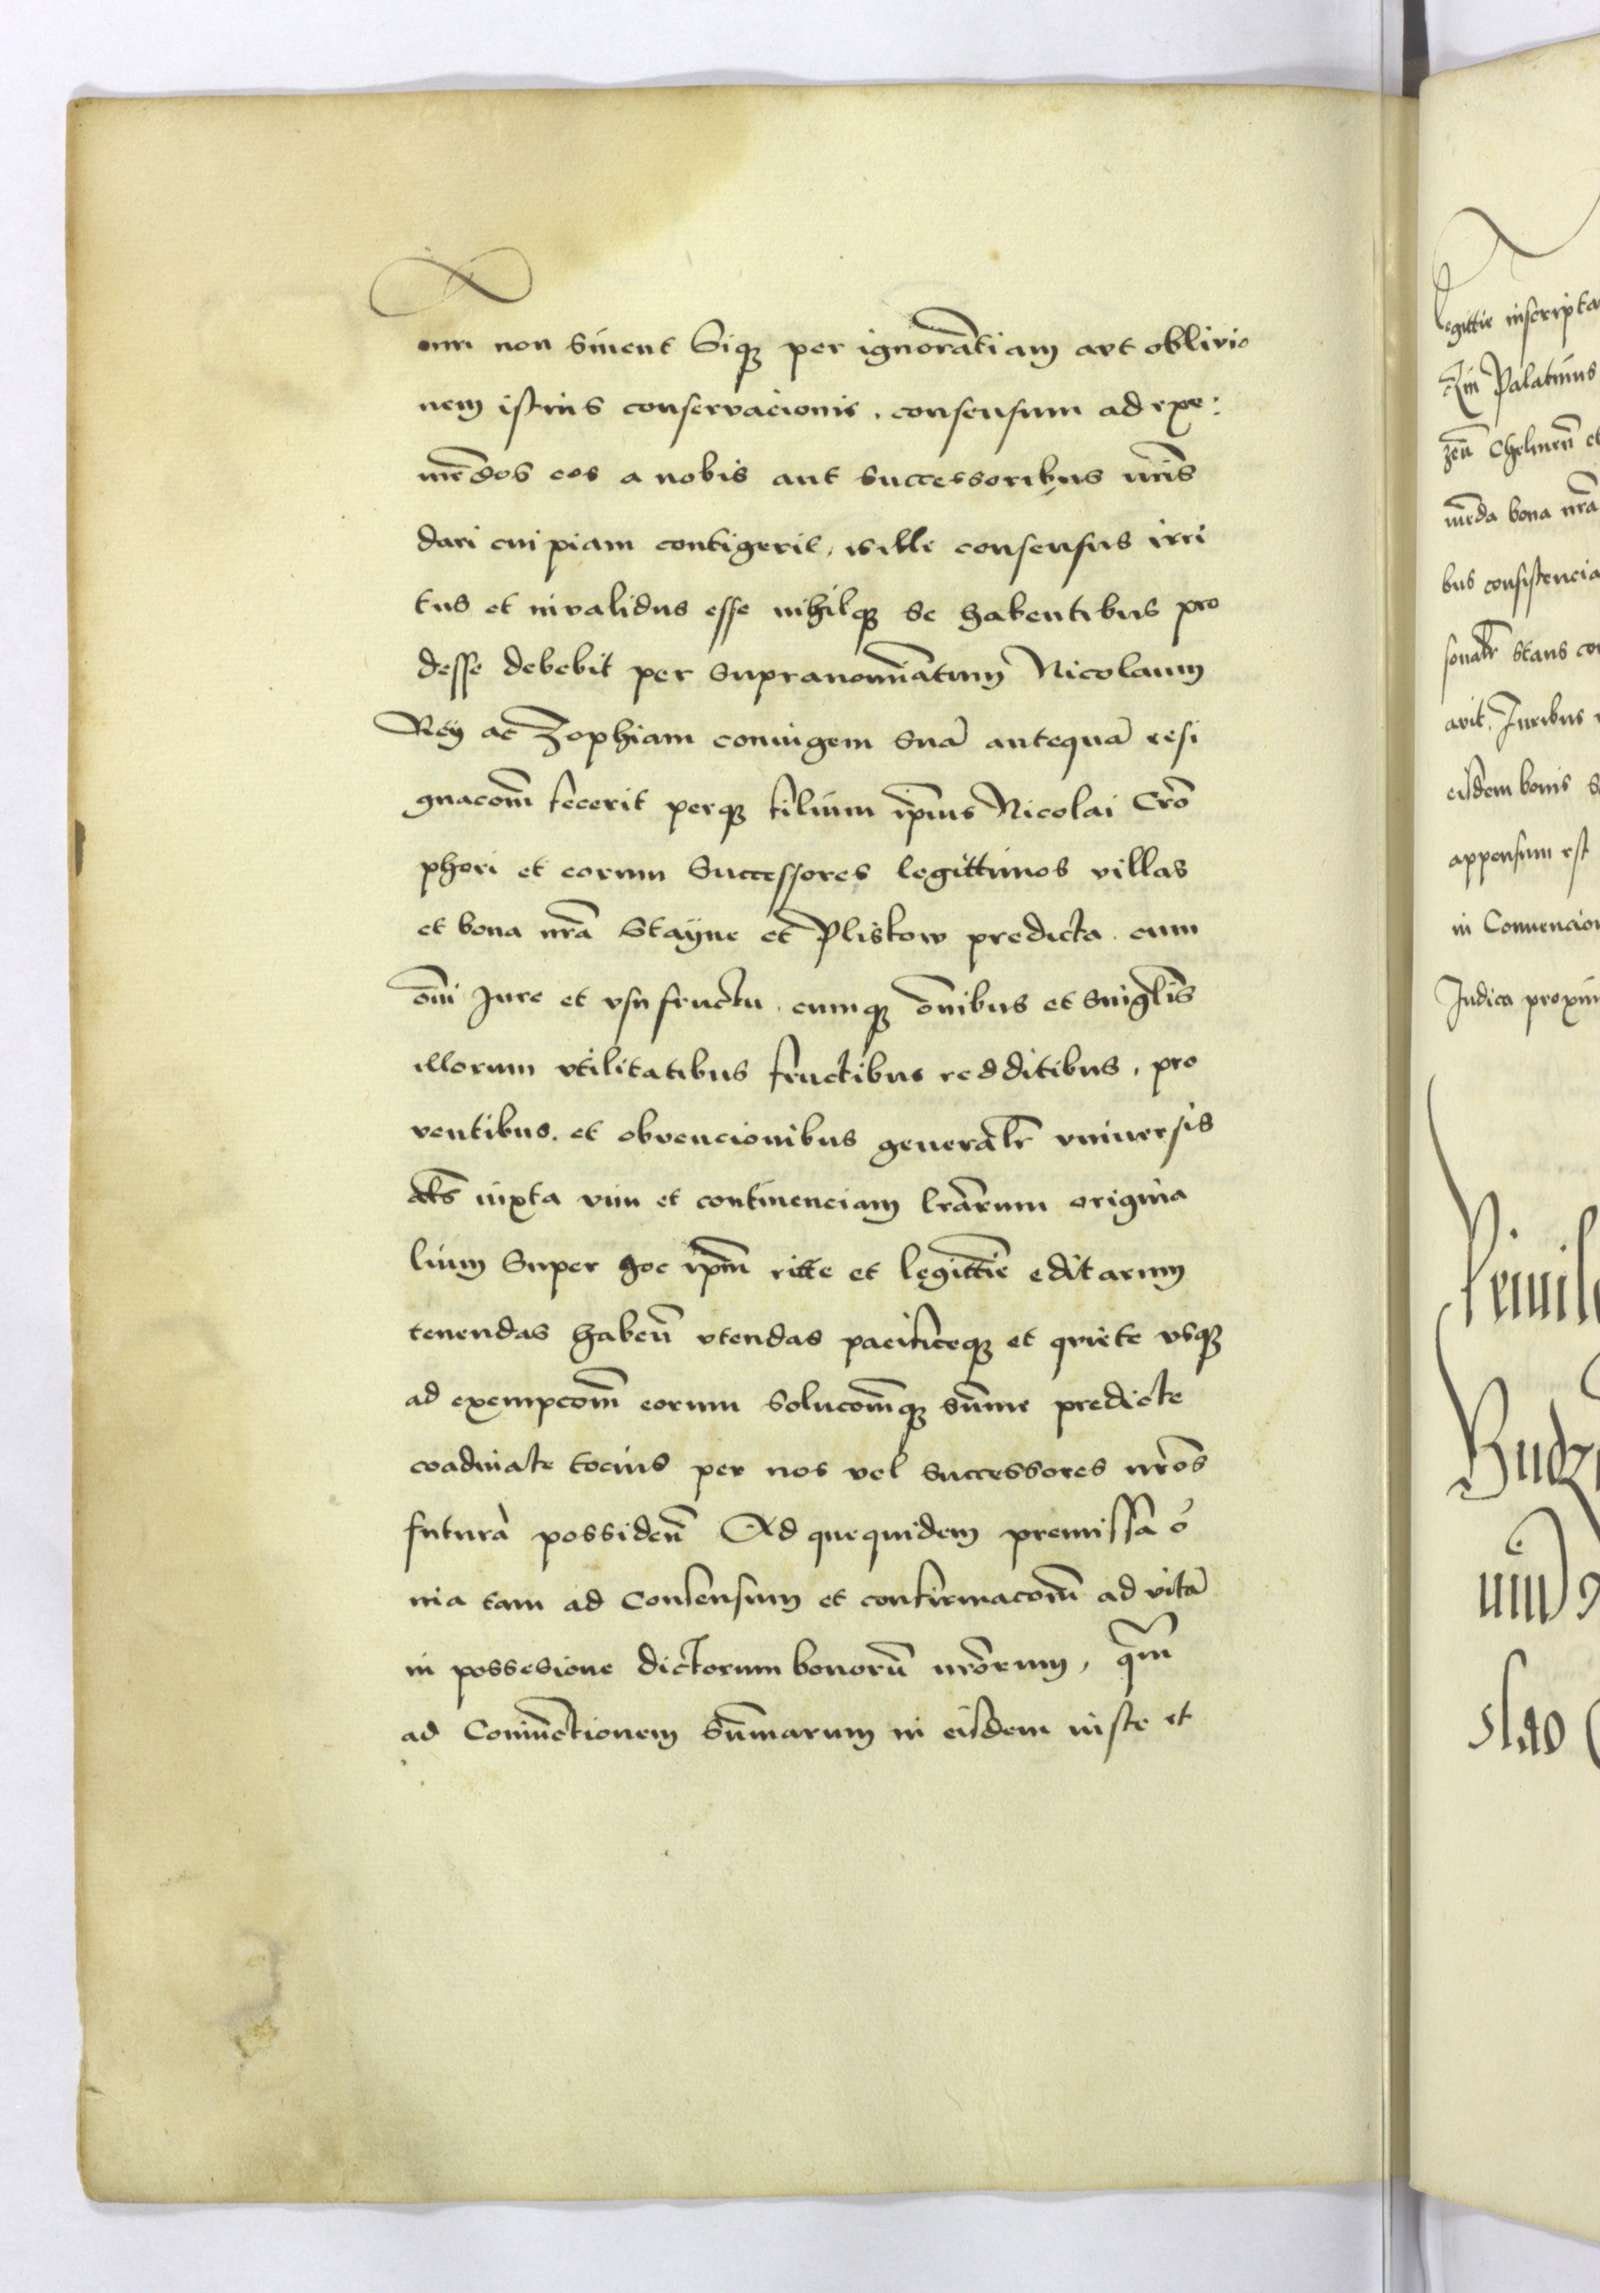 non sinent Siqꝫ per ignorātiam aut oblivio
nem istius conservacionis. consensum ad exe:
mēdos eos a nobis aut successoribus nr̄is
dari cuipiam contigerit, is ille consensus irri
tus et invalidus esse nihilqꝫ se habentibus pro
desse debebit per supranominātum Nicolaum
Rey ac Zophiam coniugem suā antequā resi
gnacōm fecerit perqꝫ filium ip̄ius Nicolai Cro̅
phori et eorum Successores legittimos villas
et bona nr̄a Stayne et Pliskow predicta. cum
om̄i Jure et vsufructu. cumqꝫ om̄ibus et singlis̄
illorum vtilitatibus fructibus redditibus, pro
ventibus. et obvencionibus generalr̄ vniuersis
iuxta vim et continenciam lr̄arum origina
lium Super hoc ip̄m ritte et legittīe editarum
tenendas haben̄ vtendas pacificeqꝫ et qriete vsqꝫ
ad exempcōm eorum solucōmqꝫ sūme predicte
coadinate tocius per nos vel successores nr̄os
futura possiden̄ Ad que quidem premissa ō
nia tam ad Consensum et confirmacōm ad vitā
in possesione dictorum bonorū nr̄orum, qm̄
ad Coniūctionem sūmarum in eisdem iuste et
legittīe inscripta
Palatinus
zen̄ Chelmen̄ et
mēda bona nr̄a
bus consistencia
sonalr̄ stans co
avit. Juribus
eisdem bonis s
appensum est
in Convencion
Judica proxim
Privile
slao